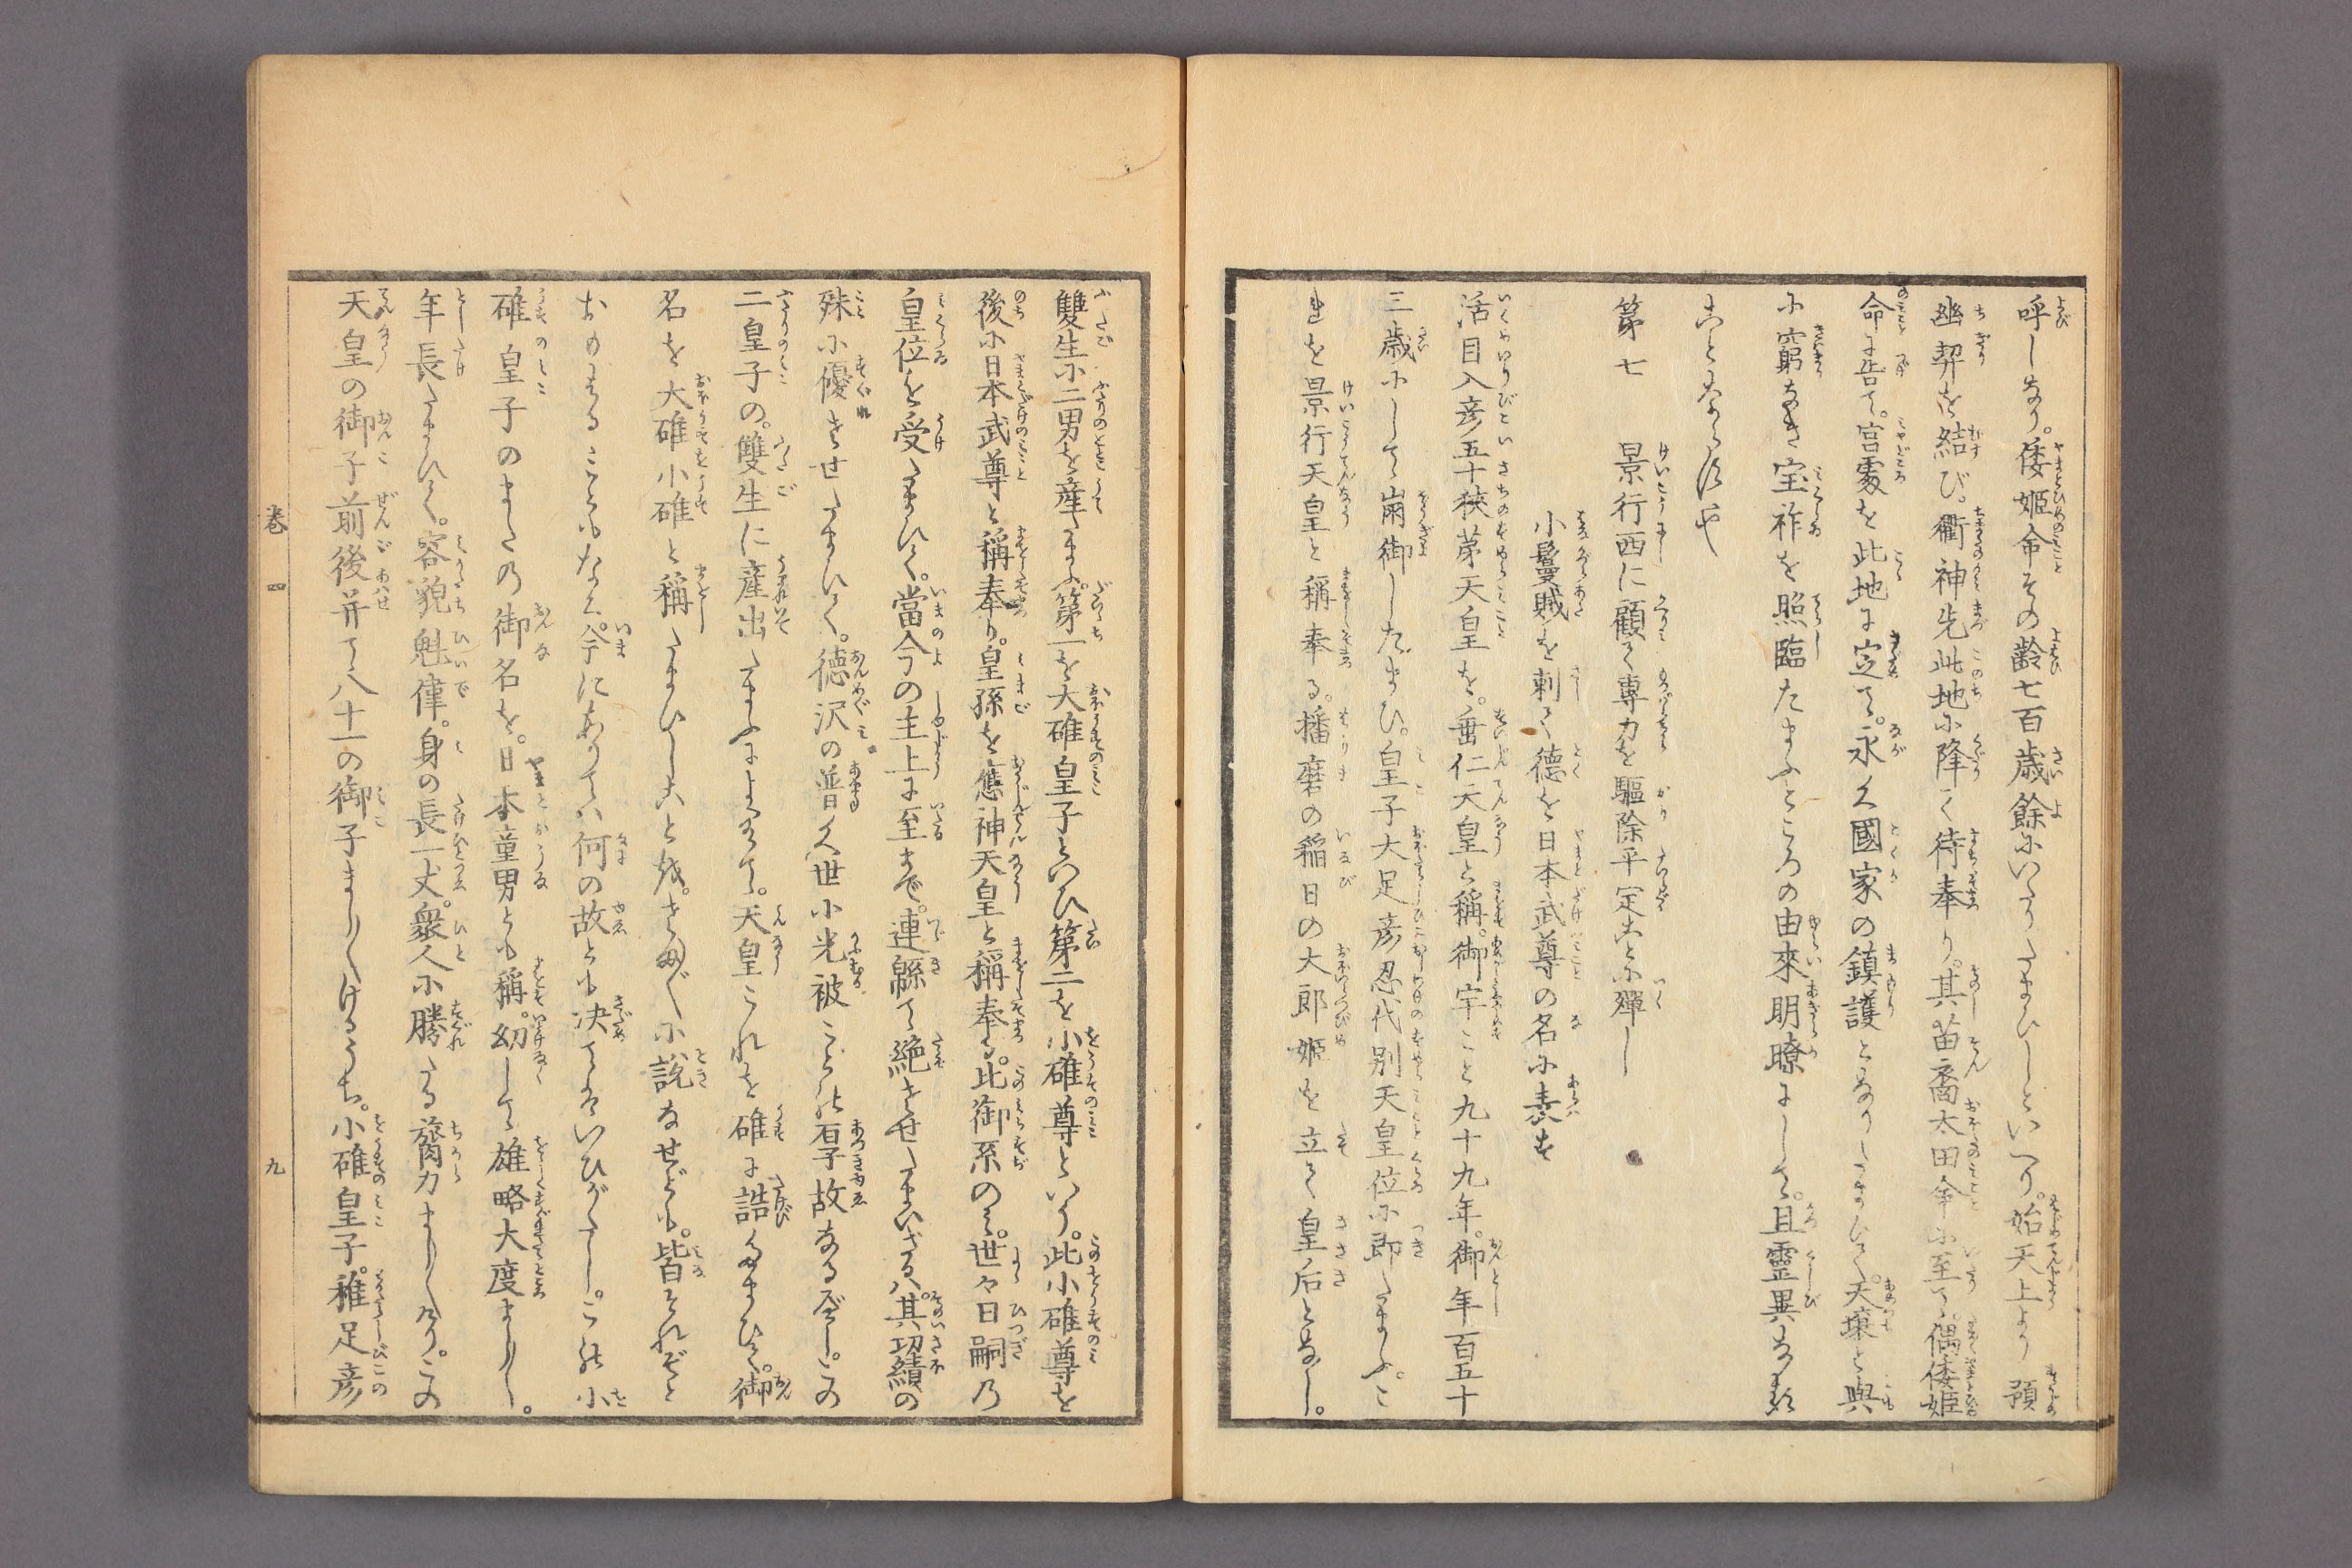 呼しなり。倭姫命その齢七百歳餘にいたりたまひしといへり。始天上より預
幽契を結び。衢神先此地に降て待奉り。其苗裔太田命に至て。偶倭姫
命に告て。宮処を此地に定て。永く國家の鎮護となりたまひて。天壌と與
に窮なき宝祚を照臨たまふところの由來明瞭にして。且霊異なる
ことならずや
第七 景行西に顧て専力を駆除平定ことに殫し
小鬘賊を刺て徳を日本武尊の名に表す
活目入彦五十狭茅天皇を。垂仁天皇と稱。御宇こと九十九年。御年百五十
三歳にして崩御したまひ。皇子大足彦忍代別天皇位に即たまふ。こ
れを景行天皇と稱奉る。播磨の稲日の大郎姫を立て皇后となし。
雙生に二男を産たまふ。第一を大碓皇子といひ第二を小碓尊という。此小碓尊を
後に日本武尊と稱奉り。皇孫を應神天皇と稱奉る。此御系のみ。世々日嗣乃
皇位を受たまひて。當今の主上に至まで。連緜て絶させたまいざるハ。其功績の
殊に優させたまいて。徳沢の普く世に光被ことの厚き故なるべし。この
二皇子の。雙生に産出たまふによりて。天皇これを碓に誥たまひて。御
名を大碓小碓と稱たまひしことを。さまざまに説なせども。皆それぞと
おもはるることもなく。今にありてハ何の故とも决てはいひがたし。この小
碓皇子のまたの御名を。日本童男とも稱。幼して雄略大度ましまし。
年長たまひて。容貌魁偉。身の長一丈。衆人に勝たる膂力ましましけり。この
天皇の御子前後并て八十一の御子ましましけるうち。小碓皇子。稚足彦
巻四 九